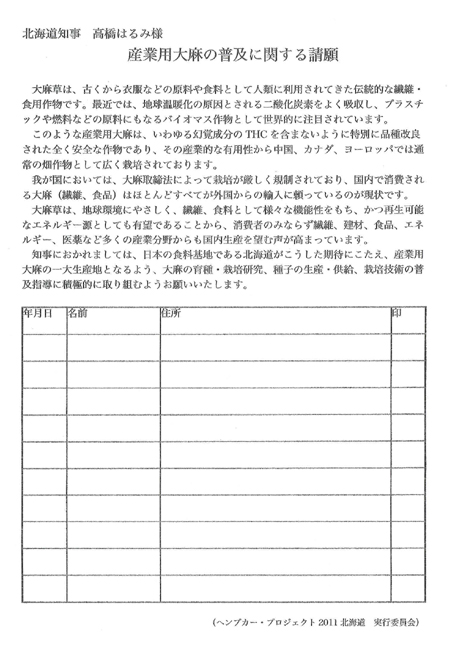 北海道知事　高橋はるみ様
産業用大麻の普及に関する請願
大麻草は、古くから衣服などの原料や食料として人類に利用されてきた伝統的な繊維・
食用作物です。最近では、地球温暖化の原因とされる二酸化炭素をよく吸収し、プラスチ
ックや燃料などの原料にもなるバイオマス作物として世界的に注目されています。
このような産業用大麻は、いわゆる幻覚成分のTHCを含まないように特別に品種改良
された全く安全な作物であり、その産業的な有用性から中国、カナダ、ヨーロッパでは通
常の畑作物として広く栽培されております。
我が国においては、大麻取締法によって栽培が厳しく規制されており、国内で消費され
る大麻（繊維、食品）はほとんどすべてが外国からの輸入に頼っているのが現状です。
大麻草は、地球環境にやさしく、繊維、食料として様々な機能性をもち、かつ再生可能
なエネルギー源としても有望であることから、消費者のみならず繊維、建材、食品、エネ
ルギー、医薬など多くの産業分野からも国内生産を望む声が高まっています。
知事におかれましては、日本の食料基地である北海道がこうした期待にこたえ、産業用
大麻の一大生産地となるよう、大麻の育種・栽培研究、種子の生産・供給、栽培技術の普
及指導に積極的に取り組むようお願いいたします。
年月日 名前 住所 印
（ヘンプカー・プロジェクト2011北海道　実行委員会）